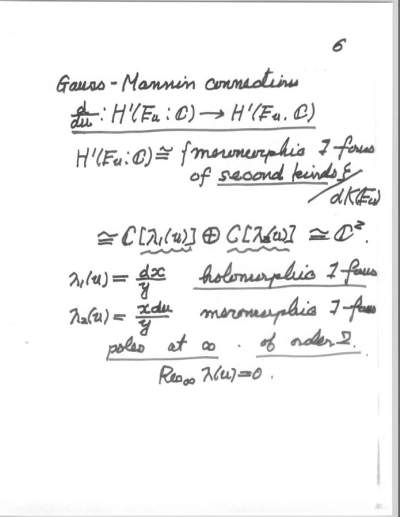 6
Gauss-Mannin connections
d/du : H'(Eu : ℂ) → H'(Eu. ℂ)
H'(Eu : ℂ) ≅ {meromorphic 1-forms
of second kinds} / dK(Eu)
≅ ℂ[λ₁(u)] ⊕ ℂ[λ₂(u)] ≅ ℂ².
λ₁(u) = dx/y holomorphic 1-forms
λ₂(u) = xdu/y meromorphic 1-forms
poles at ∞ . of order 2.
Res∞ λ(u) = 0.